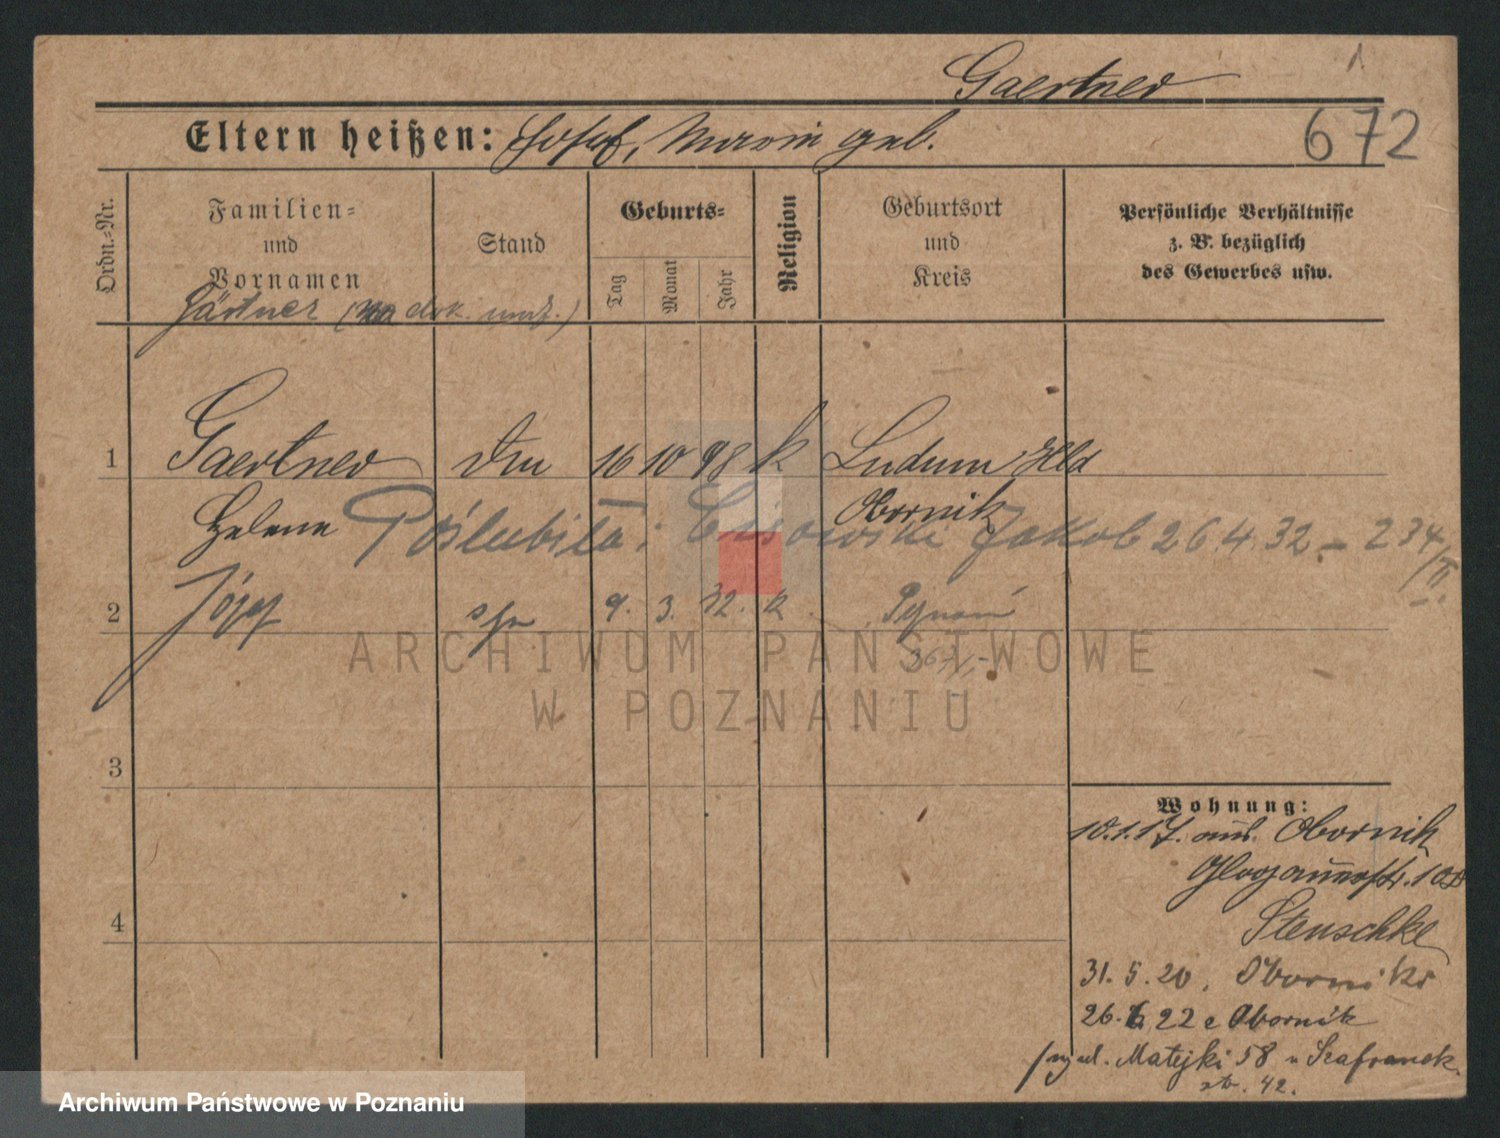 Gaertner
1
Eltern heißen: Josef, Maria geb.
672
Ordn.-Nr.
Familien- und Vornamen
Stand
Geburts-
Tag
Monat
Jahr
Religion
Geburtsort und Kreis
Persönliche Verhältnisse
z. B. bezüglich
des Gewerbes usw.
Gärtner ( dok. )
1 Gaertner 16 10 98 k Ludum Hld
Helena Obornik
Poślubiła: Jakob 26.4.32. – 234/II.
2 Józef 9. 3. 32. k. Poznań
3
4
Wohnung:
10.1.17. aus Obornik
Glogauerstr. 10
Stenschke
31.5.20. Oborniki
26. 22 Obornik
Matejki 58 Szafranek
42.
ARCHIWUM PAŃSTWOWE
W POZNANIU
Archiwum Państwowe w Poznaniu